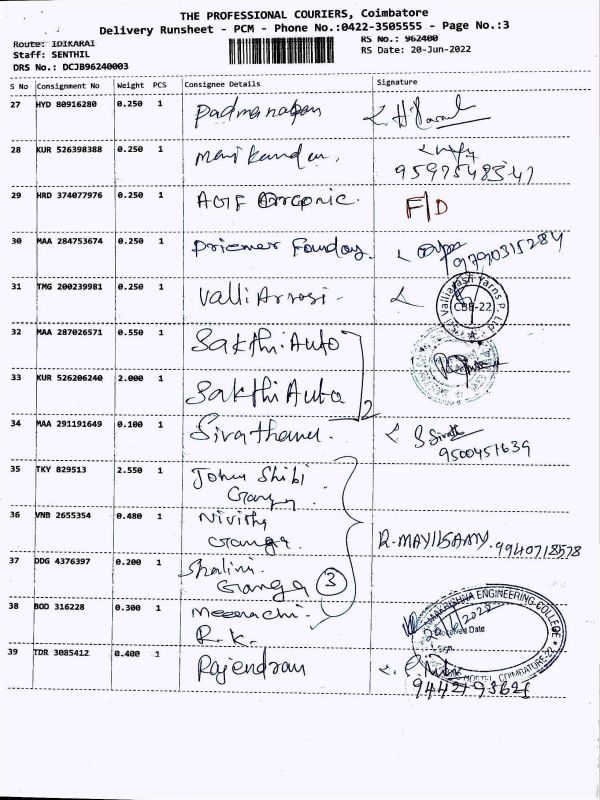 THE PROFESSIONAL COURIERS, Coimbatore
Delivery Runsheet - PCM - Phone No.:0422-3505555 - Page No.:3
Route: IDIKARAI
RS No.: 962400
Staff: SENTHIL
RS Date: 20-Jun-2022
DRS No.: DCJB96240003
S No Consignment No Weight PCS Consignee Details Signature
27 HYD 80916280 0.250 1 Padmanaban
28 KUR 526398388 0.250 1 Manikandan.
9597548347
29 HRD 374077976 0.250 1 AGIF Organic. F/D
30 MAA 284753674 0.250 1 Priemer Founday.
9790315284
31 TMG 200239981 0.250 1 Valli Arrasi -
Yarns P. Ltd
CBE-22
32 MAA 287026571 0.550 1 Sakthi Auto
33 KUR 526206240 2.000 1 Sakthi Auto
2
34 MAA 291191649 0.100 1 S Sivath
9500451639
35 TKY 829513 2.550 1 John Shibi
Ganga
36 VNB 2655354 0.480 1 Nivithy
Ganga. R. MAYILSAMY. 9940718578
37 DDG 4376397 0.200 1 Shalini.
Ganga 3
38 BOD 316228 0.300 1 Meenachi.
R.K.
ENGINEERING COLLEGE
Date
Sign
HOSTEL, COIMBATORE-22
39 TDR 3085412 0.400 1 Rajendran
9442793621